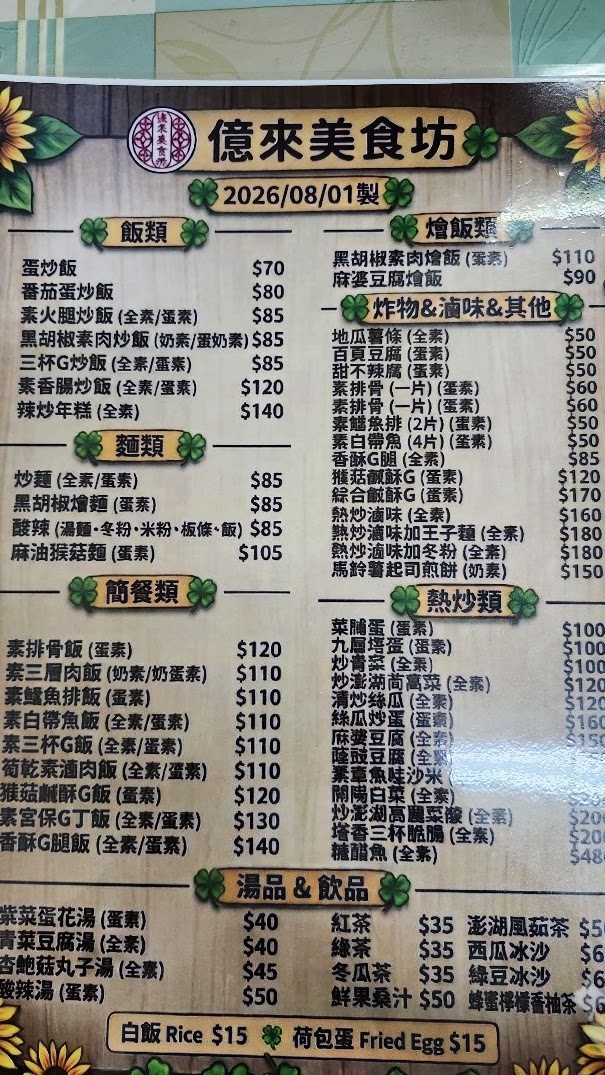 億來美食坊
2026/08/01製
飯類
蛋炒飯 $70
番茄蛋炒飯 $80
素火腿炒飯 (全素/蛋素) $85
黑胡椒素肉炒飯 (奶素/蛋奶素) $85
三杯G炒飯 (全素/蛋素) $85
素香腸炒飯 (全素/蛋素) $120
辣炒年糕 (全素) $140
麵類
炒麵 (全素/蛋素) $85
黑胡椒燴麵 (蛋素) $85
酸辣 (湯麵·冬粉·米粉·板條·飯) $85
麻油猴菇麵 (蛋素) $105
簡餐類
素排骨飯 (蛋素) $120
素三層肉飯 (奶素/奶蛋素) $110
素鱈魚排飯 (蛋素) $110
素白帶魚飯 (全素/蛋素) $110
素三杯G飯 (全素/蛋素) $110
筍乾素滷肉飯 (全素/蛋素) $110
猴菇鹹酥G飯 (蛋素) $120
素宮保G丁飯 (全素/蛋素) $130
香酥G腿飯 (全素/蛋素) $140
燴飯類
黑胡椒素肉燴飯 (蛋素) $110
麻婆豆腐燴飯 $90
炸物&滷味&其他
地瓜薯條 (全素) $50
百頁豆腐 (蛋素) $50
甜不辣腐 (蛋素) $50
素排骨 (一片) (蛋素) $60
素排骨 (一片) (蛋素) $60
素鱈魚排 (2片) (蛋素) $50
素白帶魚 (4片) (蛋素) $50
香酥G腿 (全素) $85
猴菇鹹酥G (蛋素) $120
綜合鹹酥G (蛋素) $170
熱炒滷味 (全素) $160
熱炒滷味加王子麵 (全素) $180
熱炒滷味加冬粉 (全素) $180
馬鈴薯起司煎餅 (奶素) $150
熱炒類
菜脯蛋 (蛋素) $100
九層塔蛋 (蛋素) $100
炒青菜 (全素) $100
炒澎湖茼蒿菜 (全素) $120
清炒絲瓜 (全素) $120
絲瓜炒蛋 (蛋素) $160
麻婆豆腐 (全素) $150
蔭豉豆腐 (全素)
素章魚哇沙米
開陽白菜 (全素)
炒澎湖高麗菜酸 (全素)
塔香三杯脆腸 (全素)
糖醋魚 (全素)
湯品 & 飲品
紫菜蛋花湯 (蛋素) $40
青菜豆腐湯 (全素) $40
杏鮑菇丸子湯 (全素) $45
酸辣湯 (蛋素) $50
紅茶 $35
綠茶 $35
冬瓜茶 $35
鮮果桑汁 $50
澎湖風茹茶
西瓜冰沙
綠豆冰沙
蜂蜜檸檬香柚茶
白飯 Rice $15 荷包蛋 Fried Egg $15